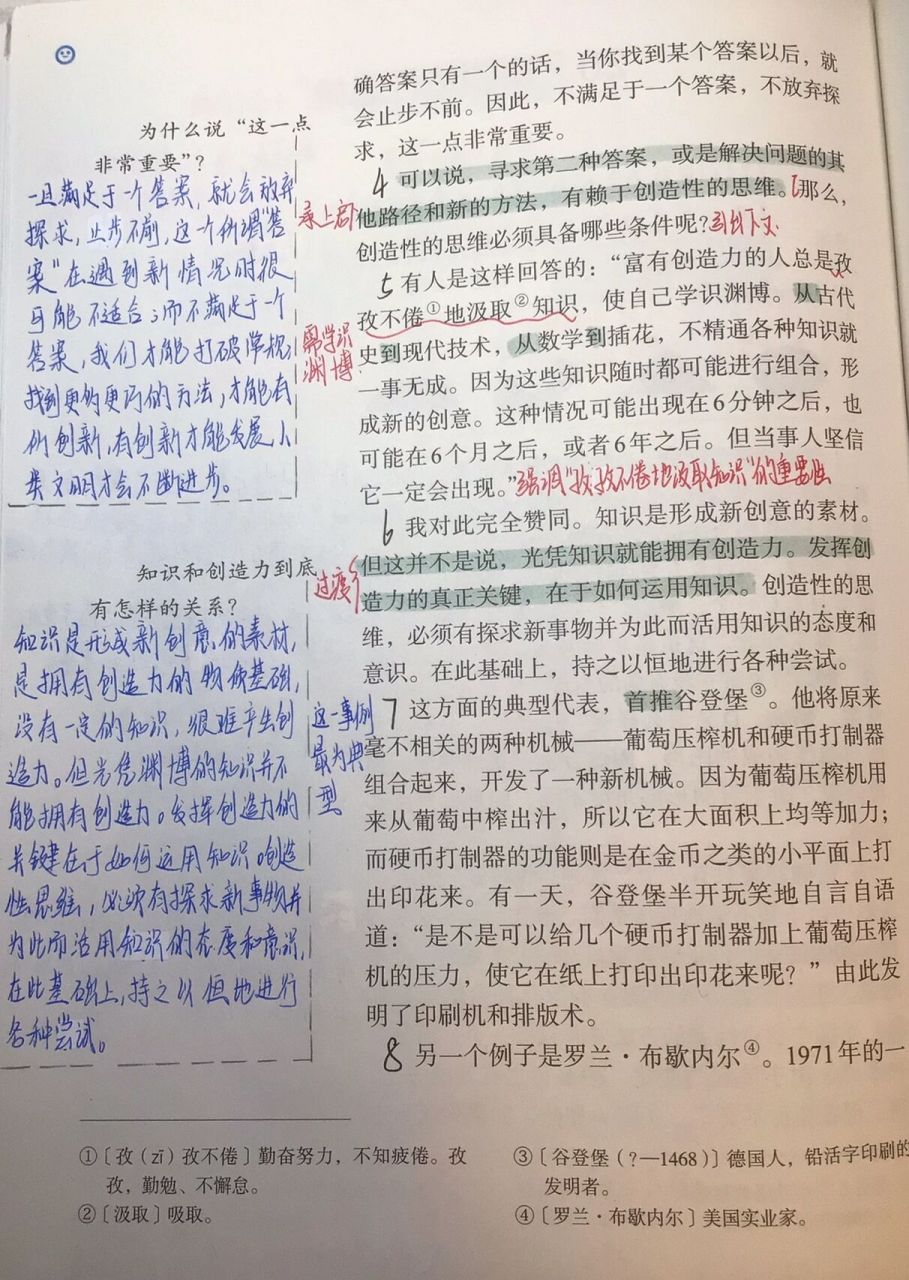 确答案只有一个的话，当你找到某个答案以后，就
会止步不前。因此，不满足于一个答案，不放弃探
求，这一点非常重要。
4 可以说，寻求第二种答案，或是解决问题的其
他路径和新的方法，有赖于创造性的思维。那么，
创造性的思维必须具备哪些条件呢？引出下文
承上启
5 有人是这样回答的：“富有创造力的人总是孜
孜不倦①地汲取②知识，使自己学识渊博。从古代
史到现代技术，从数学到插花，不精通各种知识就
一事无成。因为这些知识随时都可能进行组合，形
成新的创意。这种情况可能出现在6分钟之后，也
可能在6个月之后，或者6年之后。但当事人坚信
它一定会出现。”强调“孜孜不倦地汲取知识”的重要性
学识
渊博
6 我对此完全赞同。知识是形成新创意的素材。
但这并不是说，光凭知识就能拥有创造力。发挥创
造力的真正关键，在于如何运用知识。创造性的思
维，必须有探求新事物并为此而活用知识的态度和
意识。在此基础上，持之以恒地进行各种尝试。
过渡
7 这方面的典型代表，首推谷登堡③。他将原来
毫不相关的两种机械——葡萄压榨机和硬币打制器
组合起来，开发了一种新机械。因为葡萄压榨机用
来从葡萄中榨出汁，所以它在大面积上均等加力；
而硬币打制器的功能则是在金币之类的小平面上打
出印花来。有一天，谷登堡半开玩笑地自言自语
道：“是不是可以给几个硬币打制器加上葡萄压榨
机的压力，使它在纸上打印出印花来呢？”由此发
明了印刷机和排版术。
这一事例
最为典
型
8 另一个例子是罗兰·布歇内尔④。1971年的一
为什么说“这一点
非常重要”？
一旦满足于一个答案，就会放弃
探求，止步不前，这个所谓“答
案”在遇到新情况时很
可能不适合；而不满足于一个
答案，我们才能打破常规，
找到更的更巧的方法，才能有
所创新，有创新才能发展，人
类文明才会不断进步。
知识和创造力到底
有怎样的关系？
知识是形成新创意的素材，
是拥有创造力的物质基础，
没有一定的知识，很难产生创
造力。但光凭渊博的知识并不
能拥有创造力。发挥创造力的
关键在于如何运用知识。创造
性思维，必须有探求新事物并
为此而活用知识的态度和意识，
在此基础上，持之以恒地进行
各种尝试。
①〔孜（zī）孜不倦〕勤奋努力，不知疲倦。孜
孜，勤勉、不懈怠。
②〔汲取〕吸取。
③〔谷登堡（？—1468）〕德国人，铅活字印刷的
发明者。
④〔罗兰·布歇内尔〕美国实业家。